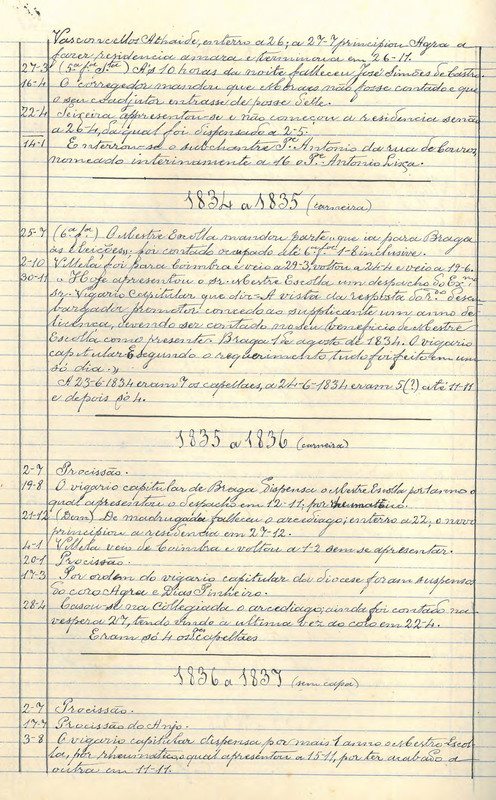 Vasconcellos Athaide, enterro a 26; a 27-7 principiou Agra a
fazer residencia amara e terminou-a em 26-11.
27-3 (5ª fª Stª) A's 10 horas da noite falleceu José Simões de Castro.
16-4 O corregedor mandou que Moraes não fosse contado e que
o seu coadjutor entrasse de posse delle.
22-4 Teixeira apresentou-se e não começou a residencia senão
a 26-4, da qual foi dispensado a 2-5.
14-1 Enterrou-se o subchantre Pe. Antonio da rua de Couros,
nomeado interinamente a 16 o Pe. Antonio Lixa.
1834 a 1835 (carneira)
25-7 (6ª fª) O Mestre Escolla mandou parte "que ia para Braga
ás eleições" foi contado ocupado até 6ª fª 1-8 inclusive.
2-10 Villela foi para Coimbra e veio a 29-3, voltou a 24-4 e veio a 19-6.
30-11 "Hoje apresentou o sr. Mestre Escolla um despacho do Exmo
sr. Vigario Capitular que diz - A vista da resposta do Rdo Desem-
bargador promotor concedo ao supplicante um anno de
licença, devendo ser contado no seu beneficio de Mestre
Escolla como presente. Braga 1 de agosto de 1834. O vigario
capitular. E segundo o requerimento tudo foi feito em um
só dia."
A 23-6-1834 eram 7 os capellães, a 24-6-1834 eram 5(?) até 11-11
e depois só 4.
1835 a 1836 (carneira)
2-7 Procissão.
19-8 O vigario capitular de Braga dispensa o Mestre Escolla por 1 anno o
qual apresentou o despacho em 12-11, por rheumatismo.
21-12 (Dom) De madrugada falleceu o arcediago; enterro a 22; o novo
principiou a residencia em 27-12.
4-1 Villela veio de Coimbra e voltou a 1-2 sem se apresentar.
20-1 Procissão.
17-3 Por ordem do vigario capitular da diocese foram suspensos
do coro Agra e Dias Pinheiro.
28-4 Casou-se na Collegiada o arcediago; ainda foi contado na
vespera 27, tendo vindo a ultima vez ao coro em 22-4.
Eram só 4 os capellães
1836 a 1837 (sem capa)
2-7 Procissão.
17-7 Procissão do Anjo.
3-8 O vigario capitular dispensa por mais 1 anno o Mestre Escol-
la, por rheumatico, o qual apresentou a 15-11, por ter acabado a
outra em 11-11.